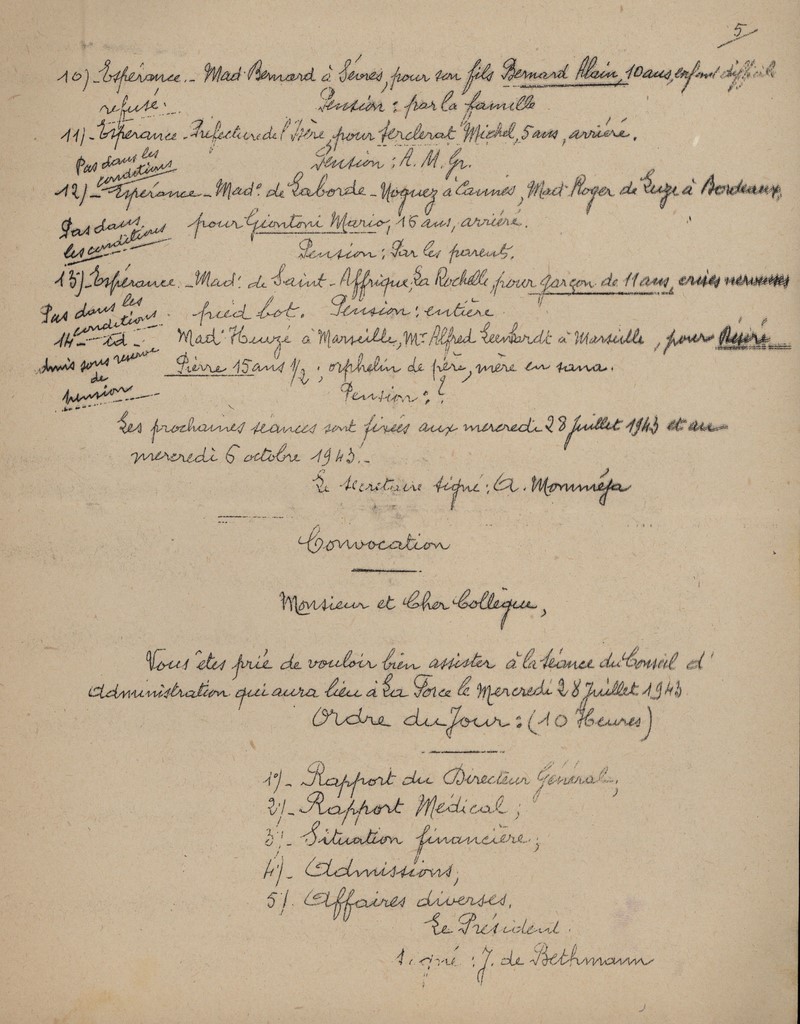 5
10)- Espérance.- Mad. Bernard à Sèvres, pour son fils Bernard Alain, 10 ans, enfant difficile
refusé. Pension : par la famille
11)- Espérance - Préfecture de l'Isère, pour Ferclerat Michel, 5 ans, arriéré.
Pas dans les conditions Pension : A. M. Gr.
12)- Espérance - Made de Laborde - Noguez à Cannes, Mad. Roger de Luze à Bordeaux,
Pas dans les conditions pour Giontoni Mario, 16 ans, arriéré.
Pension : Par les parents.
13)- Espérance.- Made de Saint-Affrique, La Rochelle, pour garçon de 11 ans, crises nerveuses
Pas dans les conditions pied bot. Pension : entière
14- id- Mad. Heuzé à Marseille, Mr Alfred Leenhardt à Marseille, pour
Admis sous reserve de pension Pierre 15 ans 1/2 ; orphelin de père, mère en sana.
Pension : ?
Les prochaines séances sont fixées aux mercredi 28 Juillet 1943 et au
mercredi 6 octobre 1943.-
Le secretaire signé : A. Momméja
Convocation
Monsieur et Cher Collègue,
Vous êtes prié de vouloir bien assister à la séance du Conseil d'
Administration qui aura lieu à La Force le Mercredi 28 Juillet 1943
Ordre du Jour : (10 Heures)
1°)- Rapport du Directeur Général,
2°)- Rapport Médical ;
3°)- Situation financière ;
4°)- Admissions,
5°)- Affaires diverses.
Le Président.
signé : J. de Bethmann